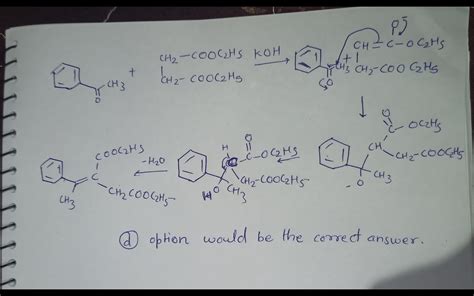 CH2-COOC2H5
CH2-COOC2H5
+
KOH
CH3
O
CH3
O
+
CH=C-OC2H5
CH2-COOC2H5
O
C-OC2H5
CH
CH2-COOC2H5
CH3
O
H
O
C-OC2H5
CH2-COOC2H5
CH3
HO
-H2O
COOC2H5
C
CH2COOC2H5
CH3
(d) option would be the correct answer.